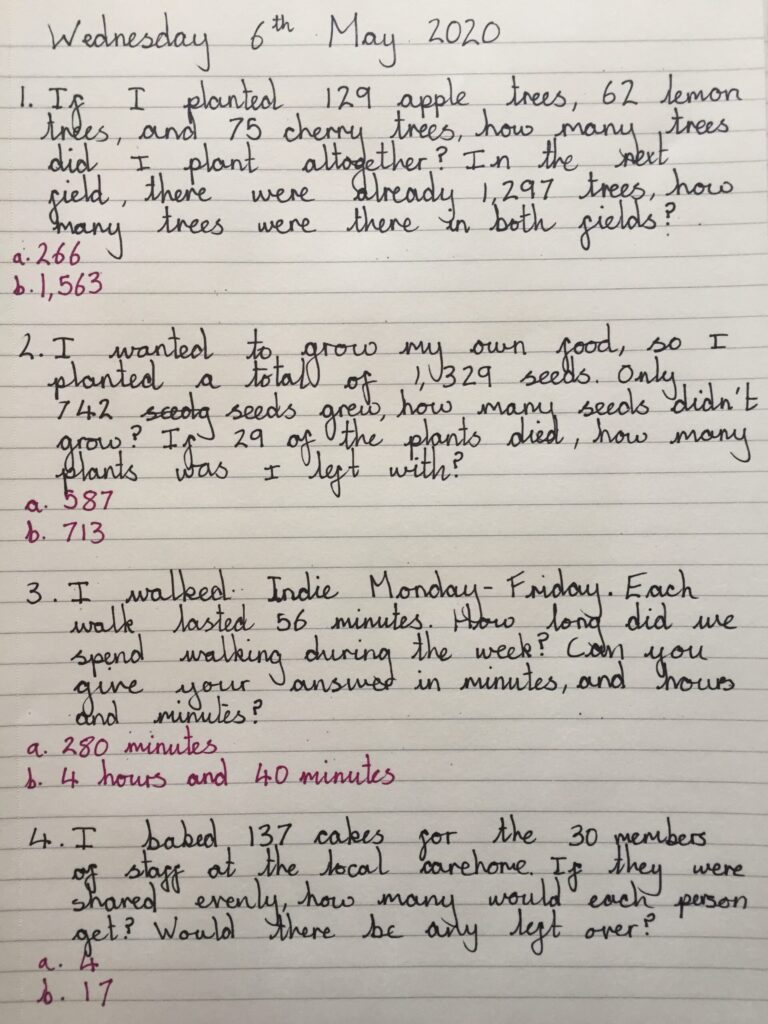 Wednesday 6th May 2020
1. If I planted 129 apple trees, 62 lemon
trees, and 75 cherry trees, how many trees
did I plant altogether? In the next
field, there were already 1,297 trees, how
many trees were there in both fields?
a. 266
b. 1,563
2. I wanted to grow my own food, so I
planted a total of 1,329 seeds. Only
742 seedg seeds grew, how many seeds didn't
grow? If 29 of the plants died, how many
plants was I left with?
a. 587
b. 713
3. I walked Indie Monday-Friday. Each
walk lasted 56 minutes. How long did we
spend walking during the week? Can you
give your answer in minutes, and hours
and minutes?
a. 280 minutes
b. 4 hours and 40 minutes
4. I baked 137 cakes for the 30 members
of staff at the local carehome. If they were
shared evenly, how many would each person
get? Would there be any left over?
a. 4
b. 17